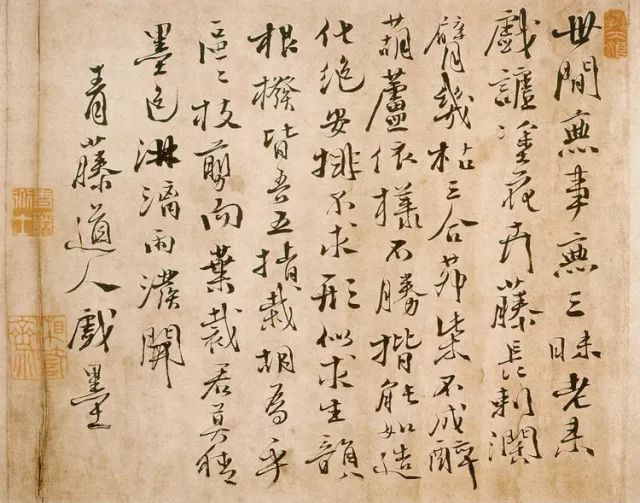 世間無事無三昧老来
戲謔塗花卉藤長刺濶
臂幾枯三合茅柴不成醉
葫蘆依樣不勝揩能如造
化絶安排不求形似求生韻
根撥皆吾五指栽胡為乎
區〻枝剪而葉裁君莫猜
墨色淋漓雨潑開
青藤道人戲墨